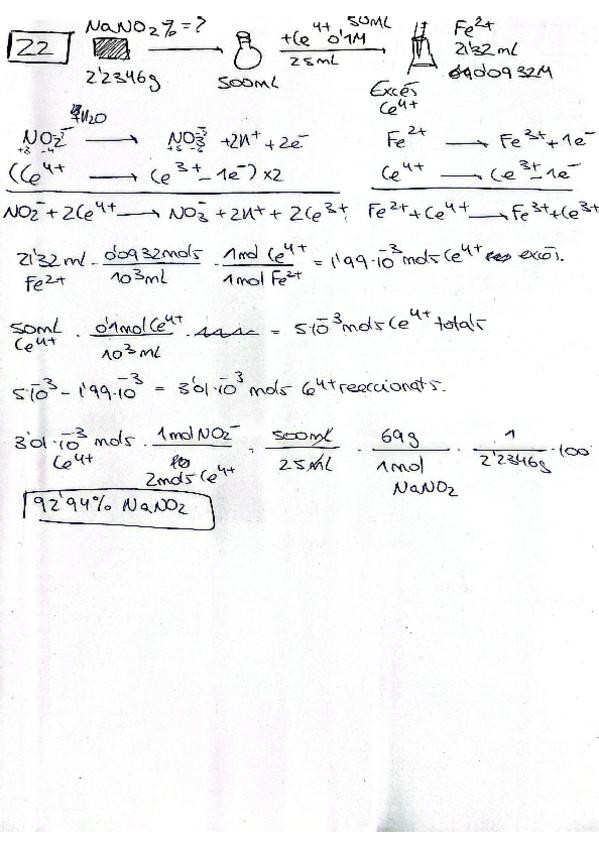 22 NaNO2 % = ? → 500mL +Ce4+ 0'1M 50mL → 25mL Fe2+
2'2346g 21'32 mL
Excés Ce4+ 0'0932M
+H2O
NO2- → NO3- + 2H+ + 2e-    Fe2+ → Fe3+ + 1e-
+3 -4 +5 -6
(Ce4+ → Ce3+ - 1e-) x2    Ce4+ → Ce3+ - 1e-
NO2- + 2Ce4+ → NO3- + 2H+ + 2Ce3+    Fe2+ + Ce4+ → Fe3+ + Ce3+
21'32 mL Fe2+ · 0'0932mols/10^3mL · 1mol Ce4+/1mol Fe2+ = 1'99·10^-3 mols Ce4+ excés.
50mL Ce4+ · 0'1mol Ce4+/10^3 mL = 5·10^-3 mols Ce4+ totals
5·10^-3 - 1'99·10^-3 = 3'01·10^-3 mols Ce4+ reeccionats.
3'01·10^-3 mols Ce4+ · 1mol NO2-/2mols Ce4+ · 500mL/25mL · 69g/1mol NaNO2 · 1/2'2346g · 100
92'94% NaNO2